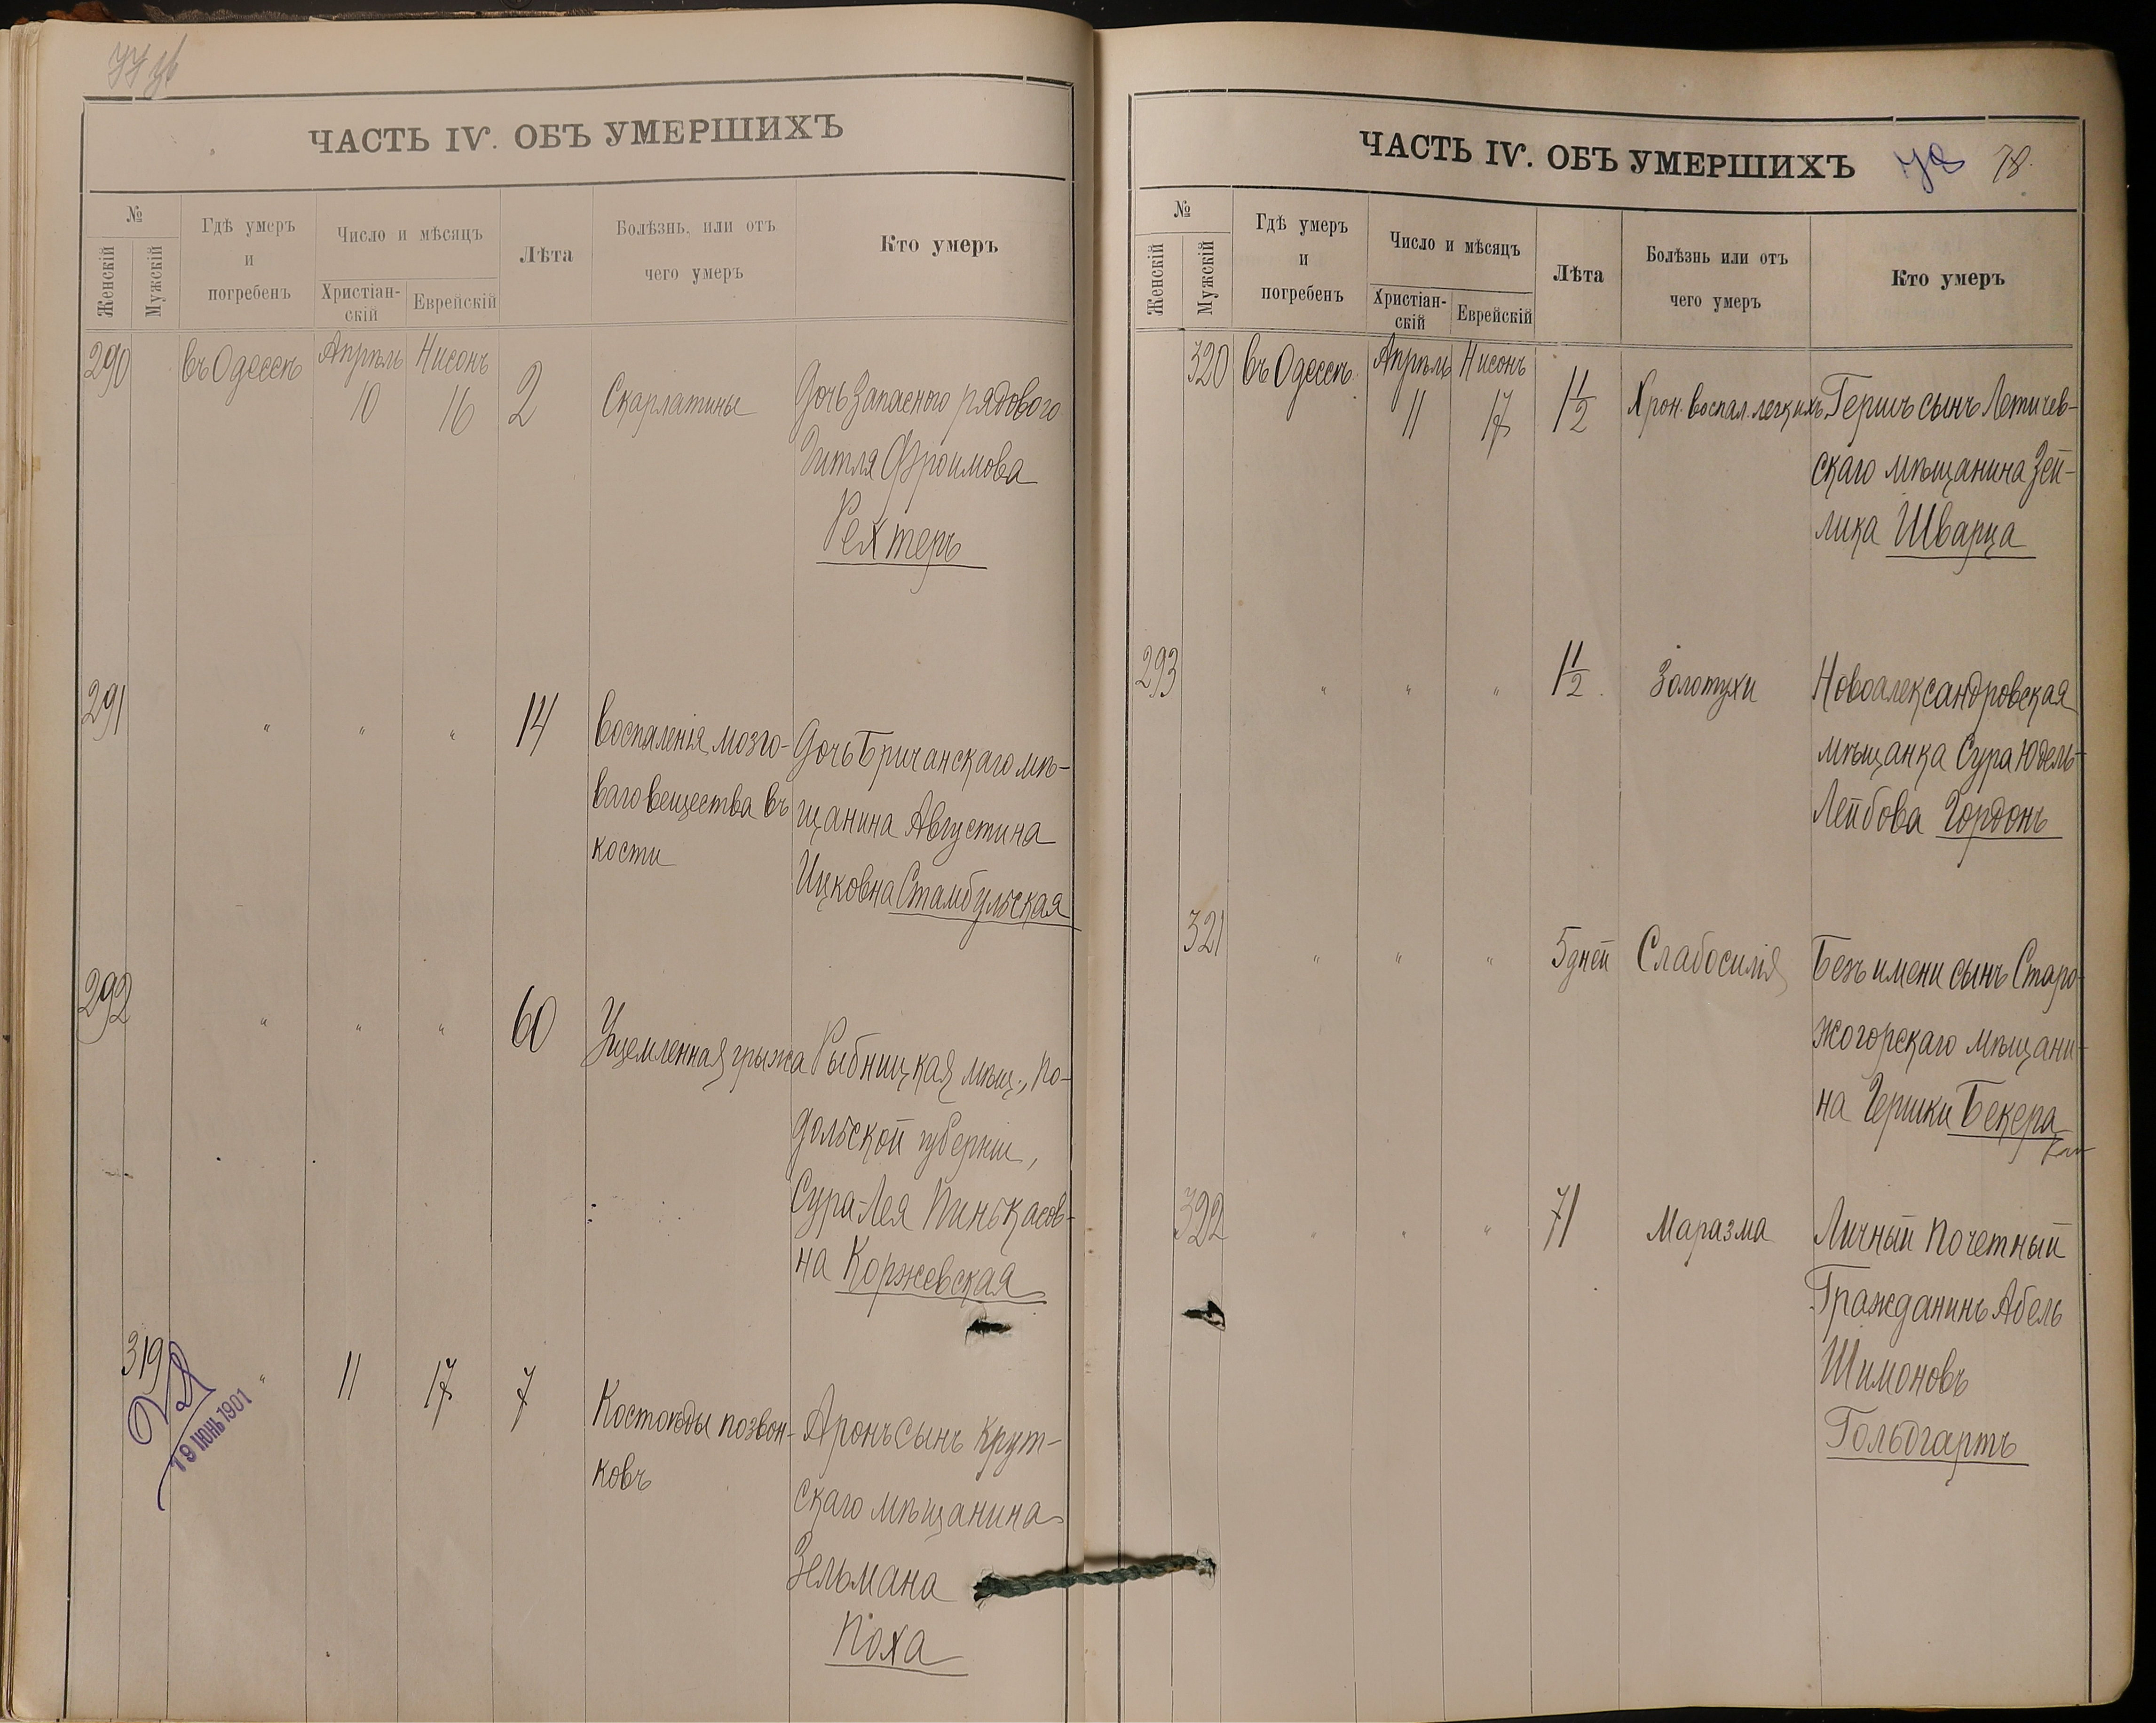 ЧАСТЬ IV. ОБЪ УМЕРШИХЪ
№
Женскій
Мужскій
Гдѣ умеръ
и
погребенъ
Число и мѣсяцъ
Христіан-
скій
Еврейскій
Лѣта
Болѣзнь, или отъ
чего умеръ
Кто умеръ
290
въ Одессѣ
Апрѣль
10
Нисонъ
16
2
Скарлатины
Дочь запасного рядового
Гитля Фроимова
Рехтеръ
291
" " "
14
Воспаленія мозго-
ваго вещества въ
кости
Дочь Бричанскаго мѣ-
щанина Августина
Ицковна Стамбульская
292
" " "
60
Ущемленная грыжа
Рыбницкая мѣщ., По-
дольской губерніи,
Сура-Лея Пинькасов-
на Коржевская
319
"
11
17
7
Костоѣды позвон-
ковъ
Аронъ сынъ Крут-
скаго мѣщанина
Зельмана
Поха
19 ІЮНЬ 1901
ЧАСТЬ IV. ОБЪ УМЕРШИХЪ
78 78.
№
Женскій
Мужскій
Гдѣ умеръ
и
погребенъ
Число и мѣсяцъ
Христіан-
скій
Еврейскій
Лѣта
Болѣзнь или отъ
чего умеръ
Кто умеръ
320
въ Одессѣ
Апрѣль
11
Нисонъ
17
1 1/2
Хрон. воспал. легкихъ
Гершъ сынъ Летичев-
скаго мѣщанина Зей-
лика Шварца
293
" " "
1 1/2
Золотухи
Новоалександровская
мѣщанка Сура Юдель-
Лейбова Гордонъ
321
" " "
5 дней
Слабосилія
Безъ имени сынъ Старо-
жогорскаго мѣщани-
на Гершки Бекера
322
" " "
71
Маразма
Личный Почетный
Гражданинъ Абель
Шимоновъ
Гольдгартъ